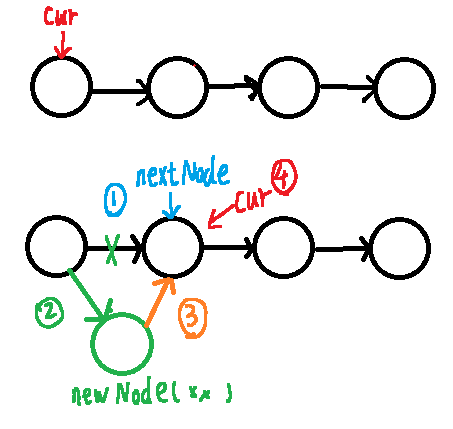 Cur
① nextNode
Cur ④
②
③
newNode(xx)